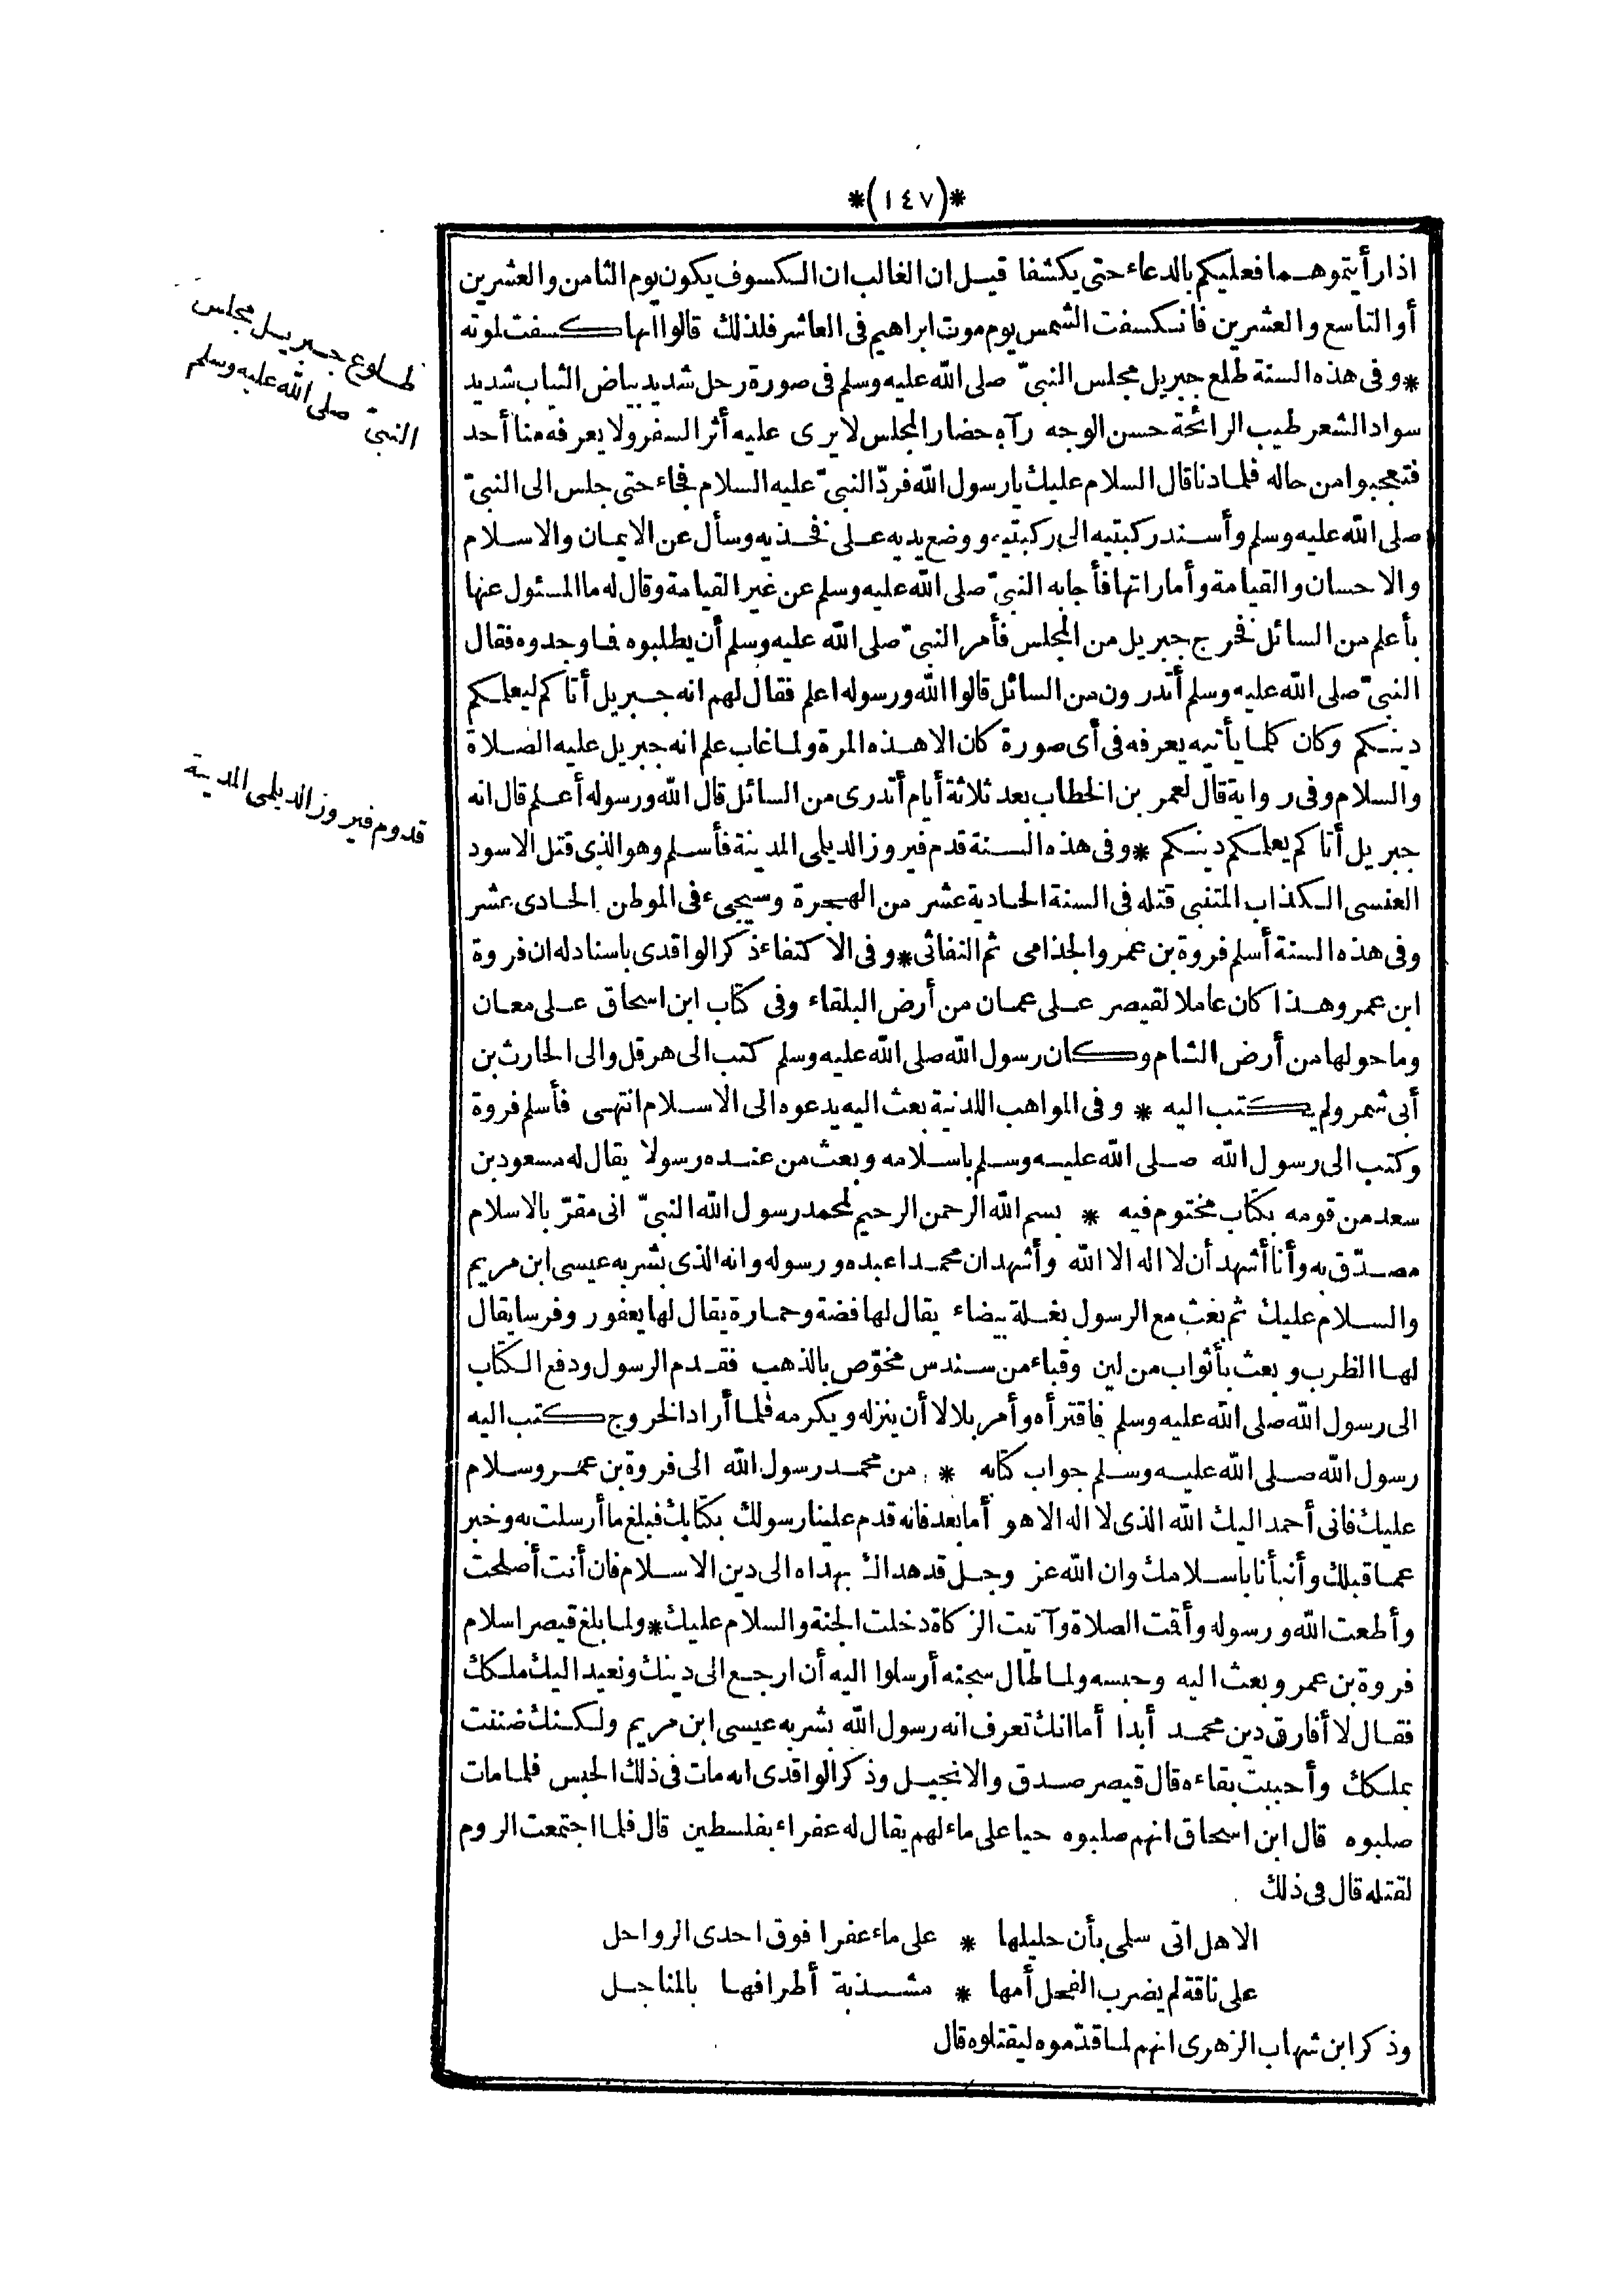 *(١٤٧)*
اذا رأيتموهما فعليكم بالدعاء حتى يكشفا قيل ان الغالب ان الكسوف يكون يوم الثامن والعشرين
أو التاسع والعشرين فانكسفت الشمس يوم موت ابراهيم فى العاشر فلذلك قالوا انها كسفت لموته
*وفى هذه السنة طلع جبريل مجلس النبىّ صلى الله عليه وسلم فى صورة رجل شديد بياض الثياب شديد
سواد الشعر طيب الرائحة حسن الوجه رآه حضار المجلس لا يرى عليه أثر السفر ولا يعرفه منا أحد
فتعجبوا من حاله فلما دنا قال السلام عليك يا رسول الله فردّ النبىّ عليه السلام فجاء حتى جلس الى النبىّ
صلى الله عليه وسلم وأسند ركبتيه الى ركبتيه ووضع يديه على فخذيه وسأل عن الايمان والاسلام
والاحسان والقيامة وأماراتها فأجابه النبىّ صلى الله عليه وسلم عن غير القيامة وقال له ما المسئول عنها
بأعلم من السائل فخرج جبريل من المجلس فأمر النبىّ صلى الله عليه وسلم أن يطلبوه فما وجدوه فقال
النبىّ صلى الله عليه وسلم أتدرون من السائل قالوا الله ورسوله اعلم فقال لهم انه جبريل أتاكم ليعلمكم
دينكم وكان كلما يأتيه يعرفه فى أى صورة كان الا هذه المرة ولما غاب علم انه جبريل عليه الصلاة
والسلام وفى رواية قال لعمر بن الخطاب بعد ثلاثة أيام أتدرى من السائل قال الله ورسوله أعلم قال انه
جبريل أتاكم يعلمكم دينكم *وفى هذه السنة قدم فيروز الديلمى المدينة فأسلم وهو الذى قتل الاسود
العنسى الكذاب المتنبى قتله فى السنة الحادية عشر من الهجرة وسيجىء فى الموطن الحادى عشر
وفى هذه السنة أسلم فروة بن عمرو الجذامى ثم النفاثى*وفى الاكتفاء ذكر الواقدى باسناد له ان فروة
ابن عمرو هذا كان عاملا لقيصر على عمان من أرض البلقاء وفى كتاب ابن اسحاق على معان
وما حولها من أرض الشام وكان رسول الله صلى الله عليه وسلم كتب الى هرقل والى الحارث بن
أبى شمر ولم يكتب اليه * وفى المواهب اللدنية بعث اليه يدعوه الى الاسلام انتهى فأسلم فروة
وكتب الى رسول الله صلى الله عليه وسلم باسلامه وبعث من عنده رسولا يقال له مسعود بن
سعد من قومه بكتاب مختوم فيه * بسم الله الرحمن الرحيم لمحمد رسول الله النبىّ انى مقرّ بالاسلام
مصدّق به وأنا أشهد أن لا اله الا الله وأشهد ان محمدا عبده ورسوله وانه الذى بشر به عيسى ابن مريم
والسلام عليك ثم بعث مع الرسول بغلة بيضاء يقال لها فضة وحمارة يقال لها يعفور وفرسا يقال
لها الظرب وبعث بأثواب من لين وقباء من سندس مخوّص بالذهب فقدم الرسول ودفع الكتاب
الى رسول الله صلى الله عليه وسلم فاقترأه وأمر بلالا أن ينزله ويكرمه فلما أراد الخروج كتب اليه
رسول الله صلى الله عليه وسلم جواب كتابه * من محمد رسول الله الى فروة بن عمرو سلام
عليك فانى أحمد اليك الله الذى لا اله الا هو أما بعد فانه قدم علينا رسولك بكتابك فبلغ ما أرسلت به وخبر
عما قبلك وأنبأنا باسلامك وان الله عز وجل قد هداك بهداه الى دين الاسلام فان أنت أصلحت
وأطعت الله ورسوله وأقمت الصلاة وآتيت الزكاة دخلت الجنة والسلام عليك*ولما بلغ قيصر اسلام
فروة بن عمرو بعث اليه وحبسه ولما طال سجنه أرسلوا اليه أن ارجع الى دينك ونعيد اليك ملكك
فقال لا أفارق دين محمد أبدا أما انك تعرف انه رسول الله بشر به عيسى ابن مريم ولكنك ضننت
بملكك وأحببت بقاءه قال قيصر صدق والانجيل وذكر الواقدى انه مات فى ذلك الحبس فلما مات
صلبوه قال ابن اسحاق انهم صلبوه حيا على ماء لهم يقال له عفراء بفلسطين قال فلما اجتمعت الروم
لقتله قال فى ذلك
الا هل اتى سلمى بأن حليلها * على ماء عفرا فوق احدى الرواحل
على ناقة لم يضرب الفحل أمها * مشذبة أطرافها بالمناجل
وذكر ابن شهاب الزهرى انهم لما قدّموه ليقتلوه قال
طلوع جبريل مجلس
النبىّ صلى الله عليه وسلم
قدوم فيروز الديلمى المدينة